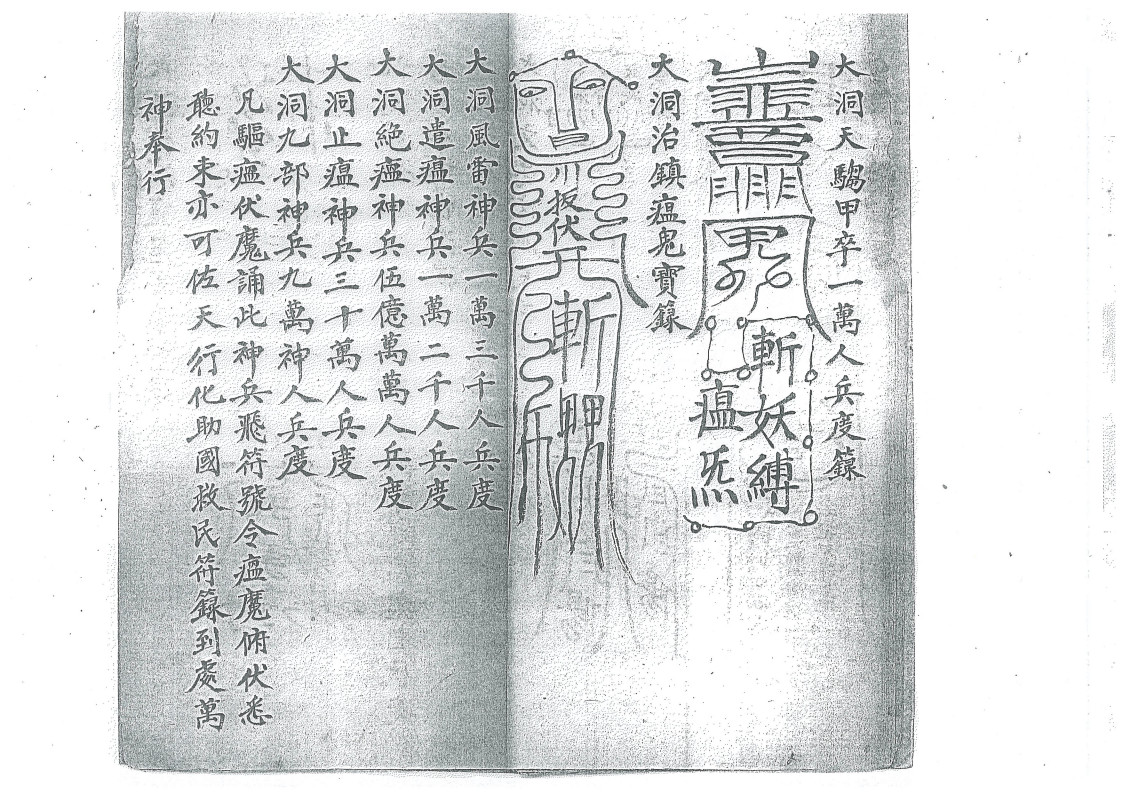 大洞天騶甲卒一萬人兵度籙
斬妖縛
瘟炁
大洞治鎮瘟鬼寶籙
扳伏
斬
大洞風雷神兵一萬三千人兵度
大洞遣瘟神兵一萬二千人兵度
大洞絕瘟神兵伍億萬萬人兵度
大洞止瘟神兵三十萬人兵度
大洞九部神兵九萬神人兵度
凡驅瘟伏魔誦此神兵飛符號令瘟魔俯伏悉
聽約束亦可佐天行化助國救民符籙到處萬
神奉行